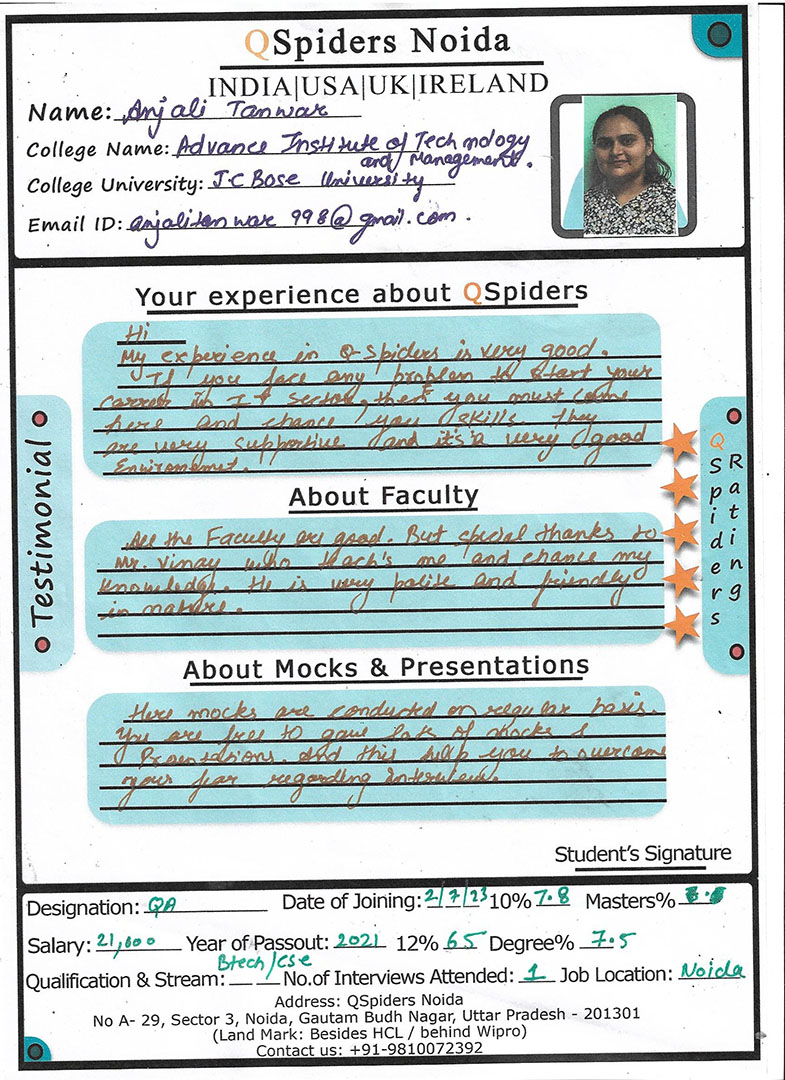 QSpiders Noida
INDIA|USA|UK|IRELAND
Name: Anjali Tanwar
College Name: Advance Institute of Technology
and Management.
College University: J.C Bose University
Email ID: anjalitanwar998@gmail.com.
Your experience about QSpiders
Hi
My experience in Q-Spiders is very good.
If you face any problem to start your
carrer in IT sector, then you must come
here and ehance you skills. They
are very supportive and it's a very good
Enviroment.
About Faculty
All the Faculty are good. But special thanks to
Mr. Vinay who teach's me and ehance my
knowledge. He is very polite and friendly
in nature.
About Mocks & Presentations
Here mocks are conducted on regular basis.
You are free to gave lots of mocks &
Presentasions. And this help you to overcome
your fear regarding Interview.
Testimonial
QSpiders
Rating
Student's Signature
Designation: QA Date of Joining: 2/7/23 10% 7.8 Masters%
Salary: 21,000 Year of Passout: 2021 12% 65 Degree% 7.5
Qualification & Stream: Btech/cse No.of Interviews Attended: 1 Job Location: Noida
Address: QSpiders Noida
No A- 29, Sector 3, Noida, Gautam Budh Nagar, Uttar Pradesh - 201301
(Land Mark: Besides HCL / behind Wipro)
Contact us: +91-9810072392